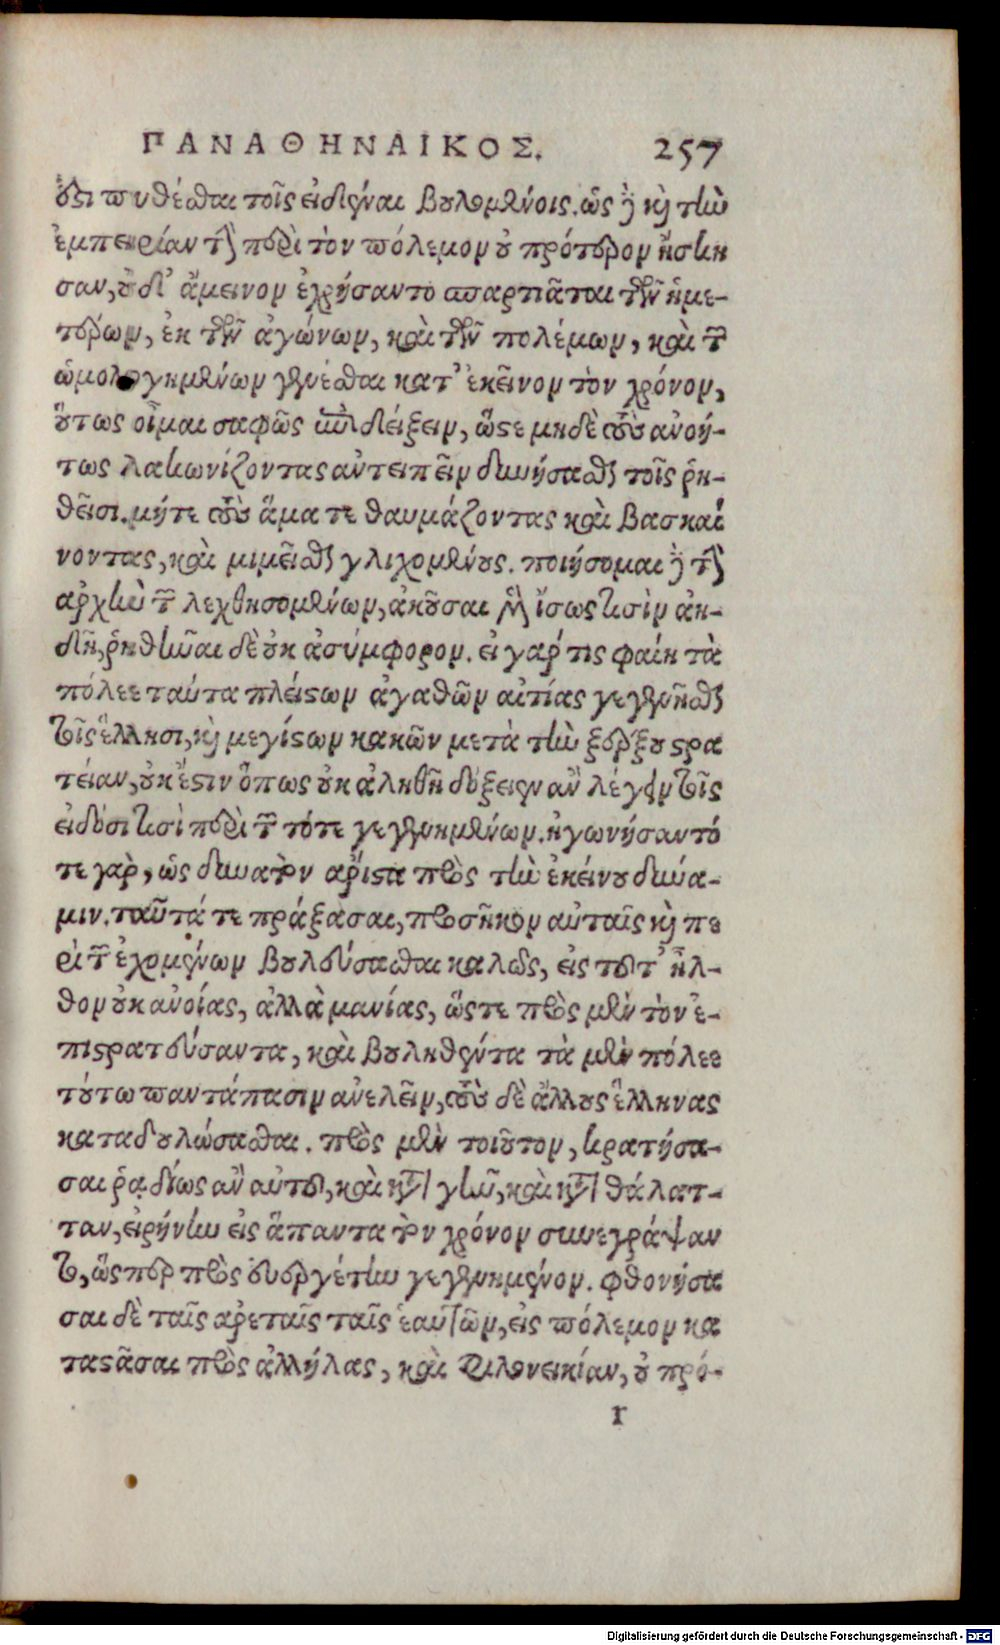 ΠΑΝΑΘΗΝΑΙΚΟΣ. 257
ουσι πυθέσθαι τοῖς εἰδέναι βουλομένοις. ὡς δὲ καὶ τὴν
ἐμπειρίαν τὴν περὶ τὸν πόλεμον οὐ πρότερον ἤσκη
σαν, οὐδ' ἄμεινον ἐχρήσαντο σπαρτιᾶται τῶν ἡμε-
τέρων, ἐκ τῶν ἀγώνων, καὶ τῶν πολέμων, καὶ τῶν
ὡμολογημένων γενέσθαι κατ' ἐκεῖνον τὸν χρόνον,
οὕτως οἶμαι σαφῶς ἐπιδείξειν, ὥστε μηδὲ τοὺς ἀνοή-
τως λακωνίζοντας ἀντειπεῖν δυνήσασθαι τοῖς ῥη-
θεῖσι. μήτε τοὺς ἅμα τε θαυμάζοντας καὶ βασκαί
νοντας, καὶ μιμεῖσθαι γλιχομένους. ποιήσομαι δὲ τὴν
ἀρχὴν τῶν λεχθησομένων, ἀκοῦσαι μὲν ἴσως τισὶν ἀη-
δῆ, ῥηθῆναι δὲ οὐκ ἀσύμφορον. εἰ γάρ τις φαίη τὰ
πόλεε ταύτα πλείστων ἀγαθῶν αἰτίας γεγενῆσθαι
τοῖς ἕλλησι, καὶ μεγίστων κακῶν μετὰ τὴν ξέρξου στρα
τείαν, οὐκ ἔστιν ὅπως οὐκ ἀληθῆ δόξειεν ἂν λέγειν τοῖς
εἰδόσι τισὶ περὶ τῶν τότε γεγενημένων. ἠγωνήσαντό
τε γὰρ, ὡς δυνατὸν ἄριστα πρὸς τὴν ἐκείνου δύνα-
μιν. ταῦτά τε πράξασαι, προσῆκον αὐταῖς καὶ πε
ρὶ τῶν ἐχομένων βουλεύσασθαι καλῶς, εἰς τοῦτ' ἦλ-
θον οὐκ ἀνοίας, ἀλλὰ μανίας, ὥστε πρὸς μὲν τὸν ἐ-
πιστρατεύσαντα, καὶ βουληθέντα τὰ μὲν πόλεε
τούτω παντάπασιν ἀνελεῖν, τοὺς δὲ ἄλλους ἕλληνας
καταδουλώσασθαι. πρὸς μὲν τοιοῦτον, κρατήσα-
σαι ῥᾳδίως ἂν αὐτοῦ, καὶ κατὰ γῆν, καὶ κατὰ θάλατ-
ταν, εἰρήνην εἰς ἅπαντα τὸν χρόνον συνεγράψαν
το, ὥσπερ πρὸς εὐεργέτην γεγενημένον. φθονήσα
σαι δὲ ταῖς ἀρεταῖς ταῖς ἑαυτῶν, εἰς πόλεμον κα
ταστᾶσαι πρὸς ἀλλήλας, καὶ φιλονεικίαν, οὐ πρό-
r
Digitalisierung gefördert durch die Deutsche Forschungsgemeinschaft - DFG